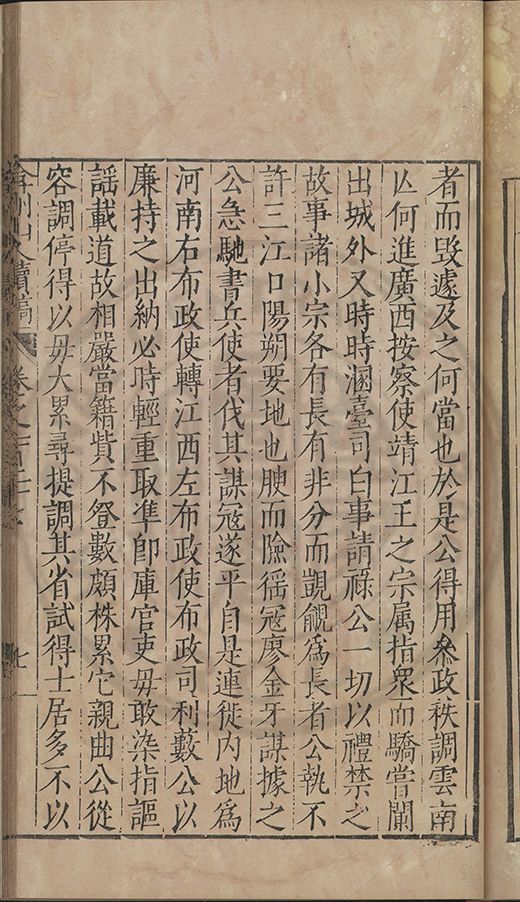 者而毀遽及之何當也於是公得用叅政秩調雲南
亾何進廣西按察使靖江王之宗属指衆而驕嘗闌
出城外又時時溷臺司白事請祿公一切以禮禁之
故事諸小宗各有長有非分而覬覦爲長者公執不
許三江口陽朔要地也腴而險徭冦廖金牙謀據之
公急馳書兵使者伐其謀冦遂平自是連徙内地爲
河南右布政使轉江西左布政使布政司利藪公以
廉持之出納必時輕重取凖卽庫官吏毋敢染指謳
謡載道故相嚴當籍貲不登數頗株累它親曲公從
容調停得以毋大累尋提調其省試得士居多不以
續稿 卷之一百
七